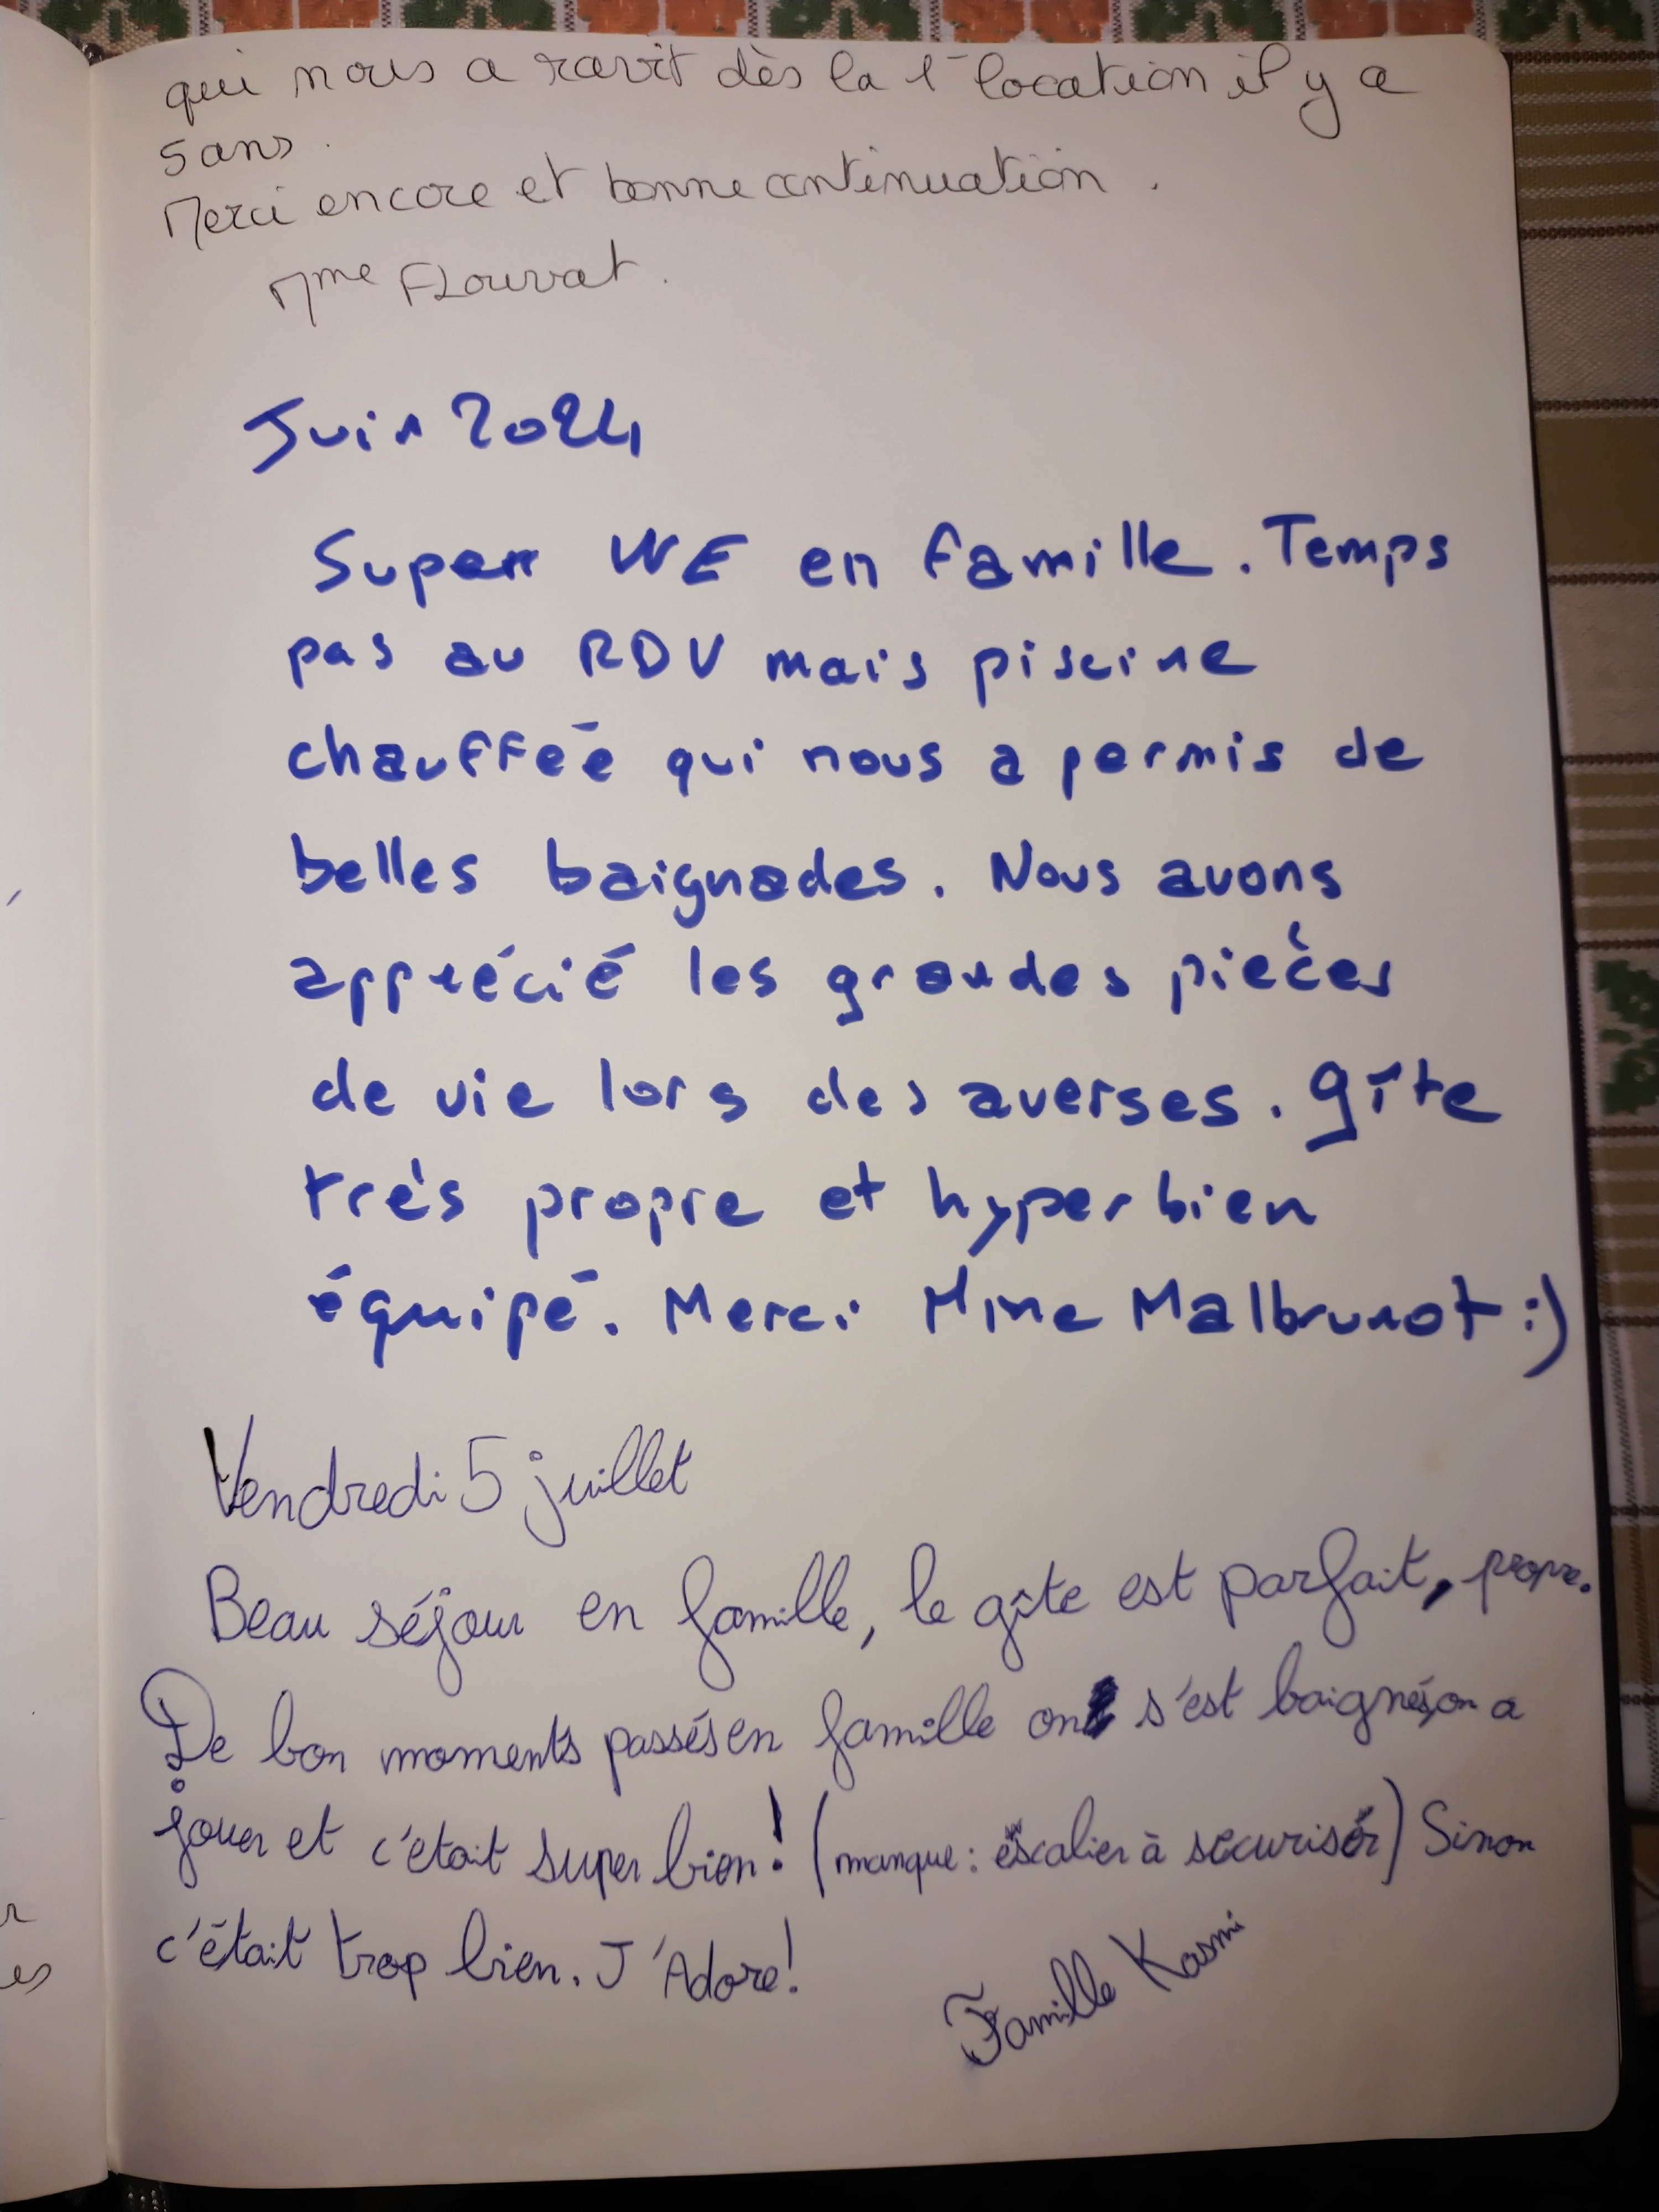 qui nous a ravit dès la 1 location il y a
5 ans.
Merci encore et bonne continuation.
Mme Flouvat.
Juin 2024
Super WE en famille. Temps
pas au RDV mais piscine
chauffée qui nous a permis de
belles baignades. Nous avons
apprécié les grandes pièces
de vie lors des averses. gîte
très propre et hyper bien
équipé. Merci Mme Malbrunot :)
Vendredi 5 juillet
Beau séjour en famille, le gîte est parfait, propre.
De bon moments passés en famille on s'est baignés, on a
jouer et c'était super bien! (manque : escalier à sécuriser) Sinon
c'était trop bien. J'Adore!
Famille Kasmi
r
es